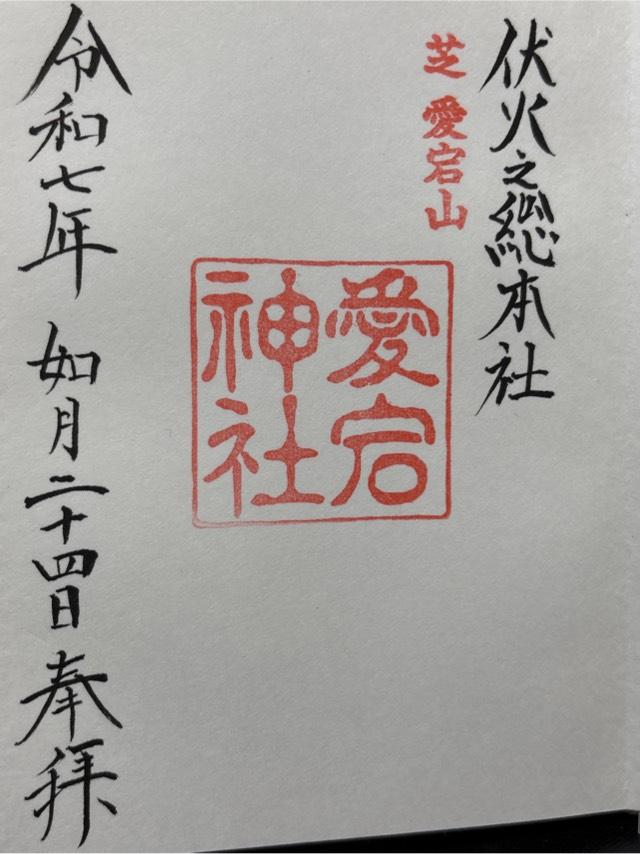 伏火之総本社
芝 愛宕山
愛宕
神社
令和七年 如月二十四日 奉拝